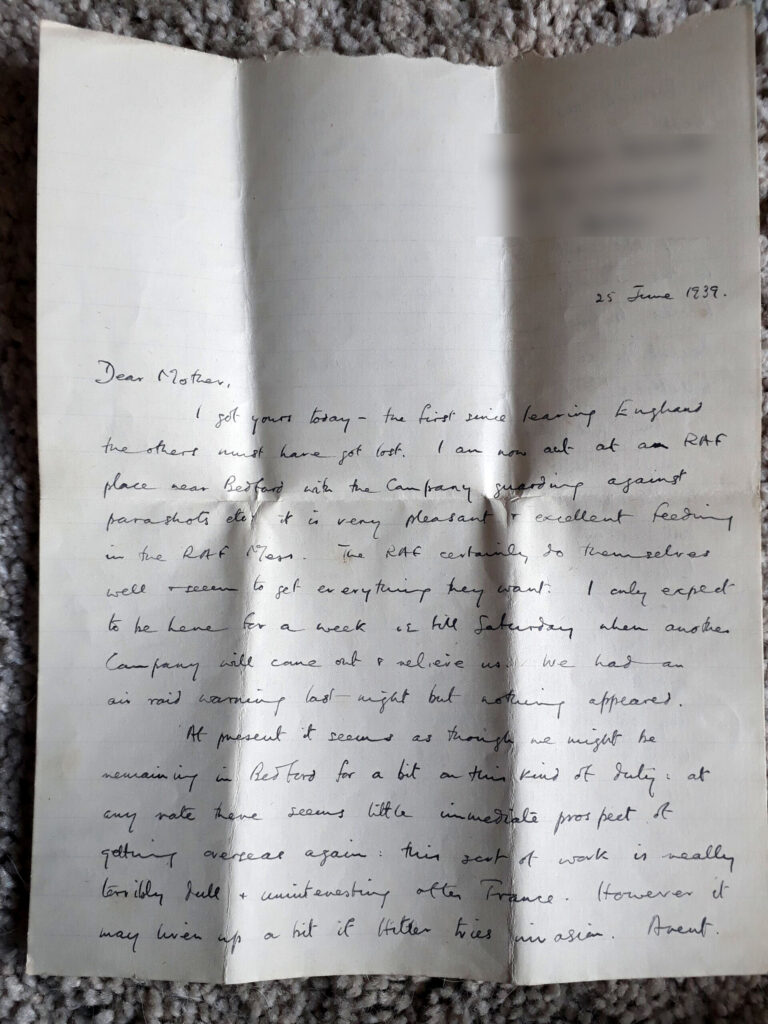 25 June 1939.
Dear Mother,
I got yours today - the first since leaving England
the others must have got lost. I am now out at an RAF
place near Bedford with the Company guarding against
parashots etc, it is very pleasant & excellent feeding
in the RAF Mess. The RAF certainly do themselves
well & seem to get everything they want. I only expect
to be here for a week ie till Saturday when another
Company will come out & relieve us. We had an
air raid warning last night but nothing appeared.
At present it seems as though we might be
remaining in Bedford for a bit on this kind of duty: at
any rate there seems little immediate prospect of
getting overseas again: this sort of work is really
terribly dull & uninteresting after France. However it
may liven up a bit if Hitler tries invasion.